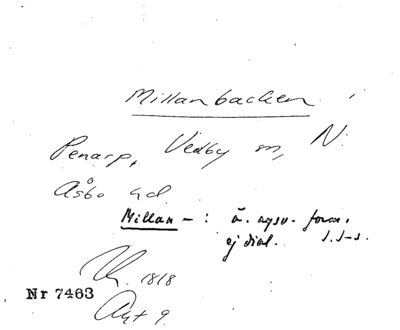 Millanbacken
Penarp, Vedby sn, N.
Åsbo hd.
Millan- : ä. ägov. form,
ej dial. S.S-s.
1818
Nr 7463
Akt 9.